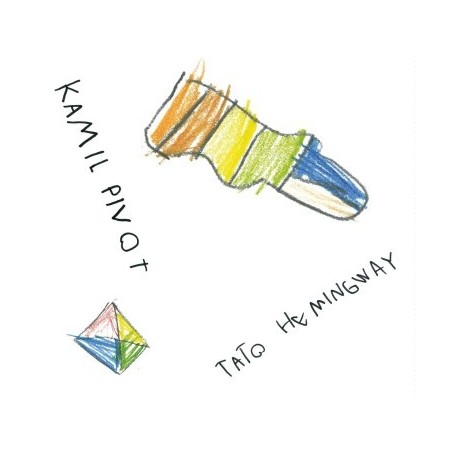 KAMIL PIVOT
TATO HEMINGWAY